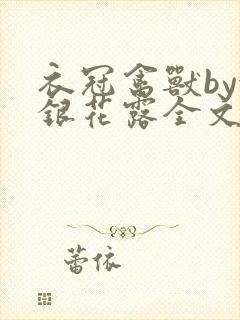 衣冠禽獸by
銀花露全文
蕾依